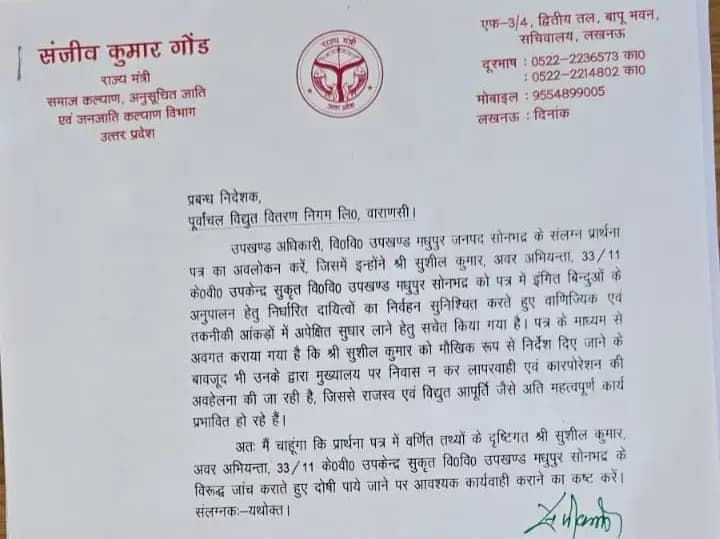 संजीव कुमार गोंड
राज्य मंत्री
समाज कल्याण, अनुसूचित जाति
एवं जनजाति कल्याण विभाग
उत्तर प्रदेश
एफ-3/4, द्वितीय तल, बापू भवन,
सचिवालय, लखनऊ
दूरभाष : 0522-2236573 का0
: 0522-2214802 का0
मोबाइल : 9554899005
लखनऊ : दिनांक
राज्य मंत्री
उत्तर प्रदेश
प्रबन्ध निदेशक,
पूर्वांचल विद्युत वितरण निगम लि0, वाराणसी।
उपखण्ड अधिकारी, वि0वि0 उपखण्ड मधुपुर जनपद सोनभद्र के संलग्न प्रार्थना
पत्र का अवलोकन करें, जिसमें इन्होंने श्री सुशील कुमार, अवर अभियन्ता, 33/11
के0वी0 उपकेन्द्र सुकृत वि0वि0 उपखण्ड मधुपुर सोनभद्र को पत्र में इंगित बिन्दुओं के
अनुपालन हेतु निर्धारित दायित्वों का निर्वहन सुनिश्चित करते हुए वाणिज्यिक एवं
तकनीकी आंकड़ों में अपेक्षित सुधार लाने हेतु सचेत किया गया है। पत्र के माध्यम से
अवगत कराया गया है कि श्री सुशील कुमार को मौखिक रूप से निर्देश दिए जाने के
बावजूद भी उनके द्वारा मुख्यालय पर निवास न कर लापरवाही एवं कारपोरेशन की
अवहेलना की जा रही है, जिससे राजस्व एवं विद्युत आपूर्ति जैसे अति महत्वपूर्ण कार्य
प्रभावित हो रहे हैं।
अतः मैं चाहूंगा कि प्रार्थना पत्र में वर्णित तथ्यों के दृष्टिगत श्री सुशील कुमार,
अवर अभियन्ता, 33/11 के0वी0 उपकेन्द्र सुकृत वि0वि0 उपखण्ड मधुपुर सोनभद्र के
विरूद्ध जांच कराते हुए दोषी पाये जाने पर आवश्यक कार्यवाही कराने का कष्ट करें।
संलग्नकः-यथोक्त।